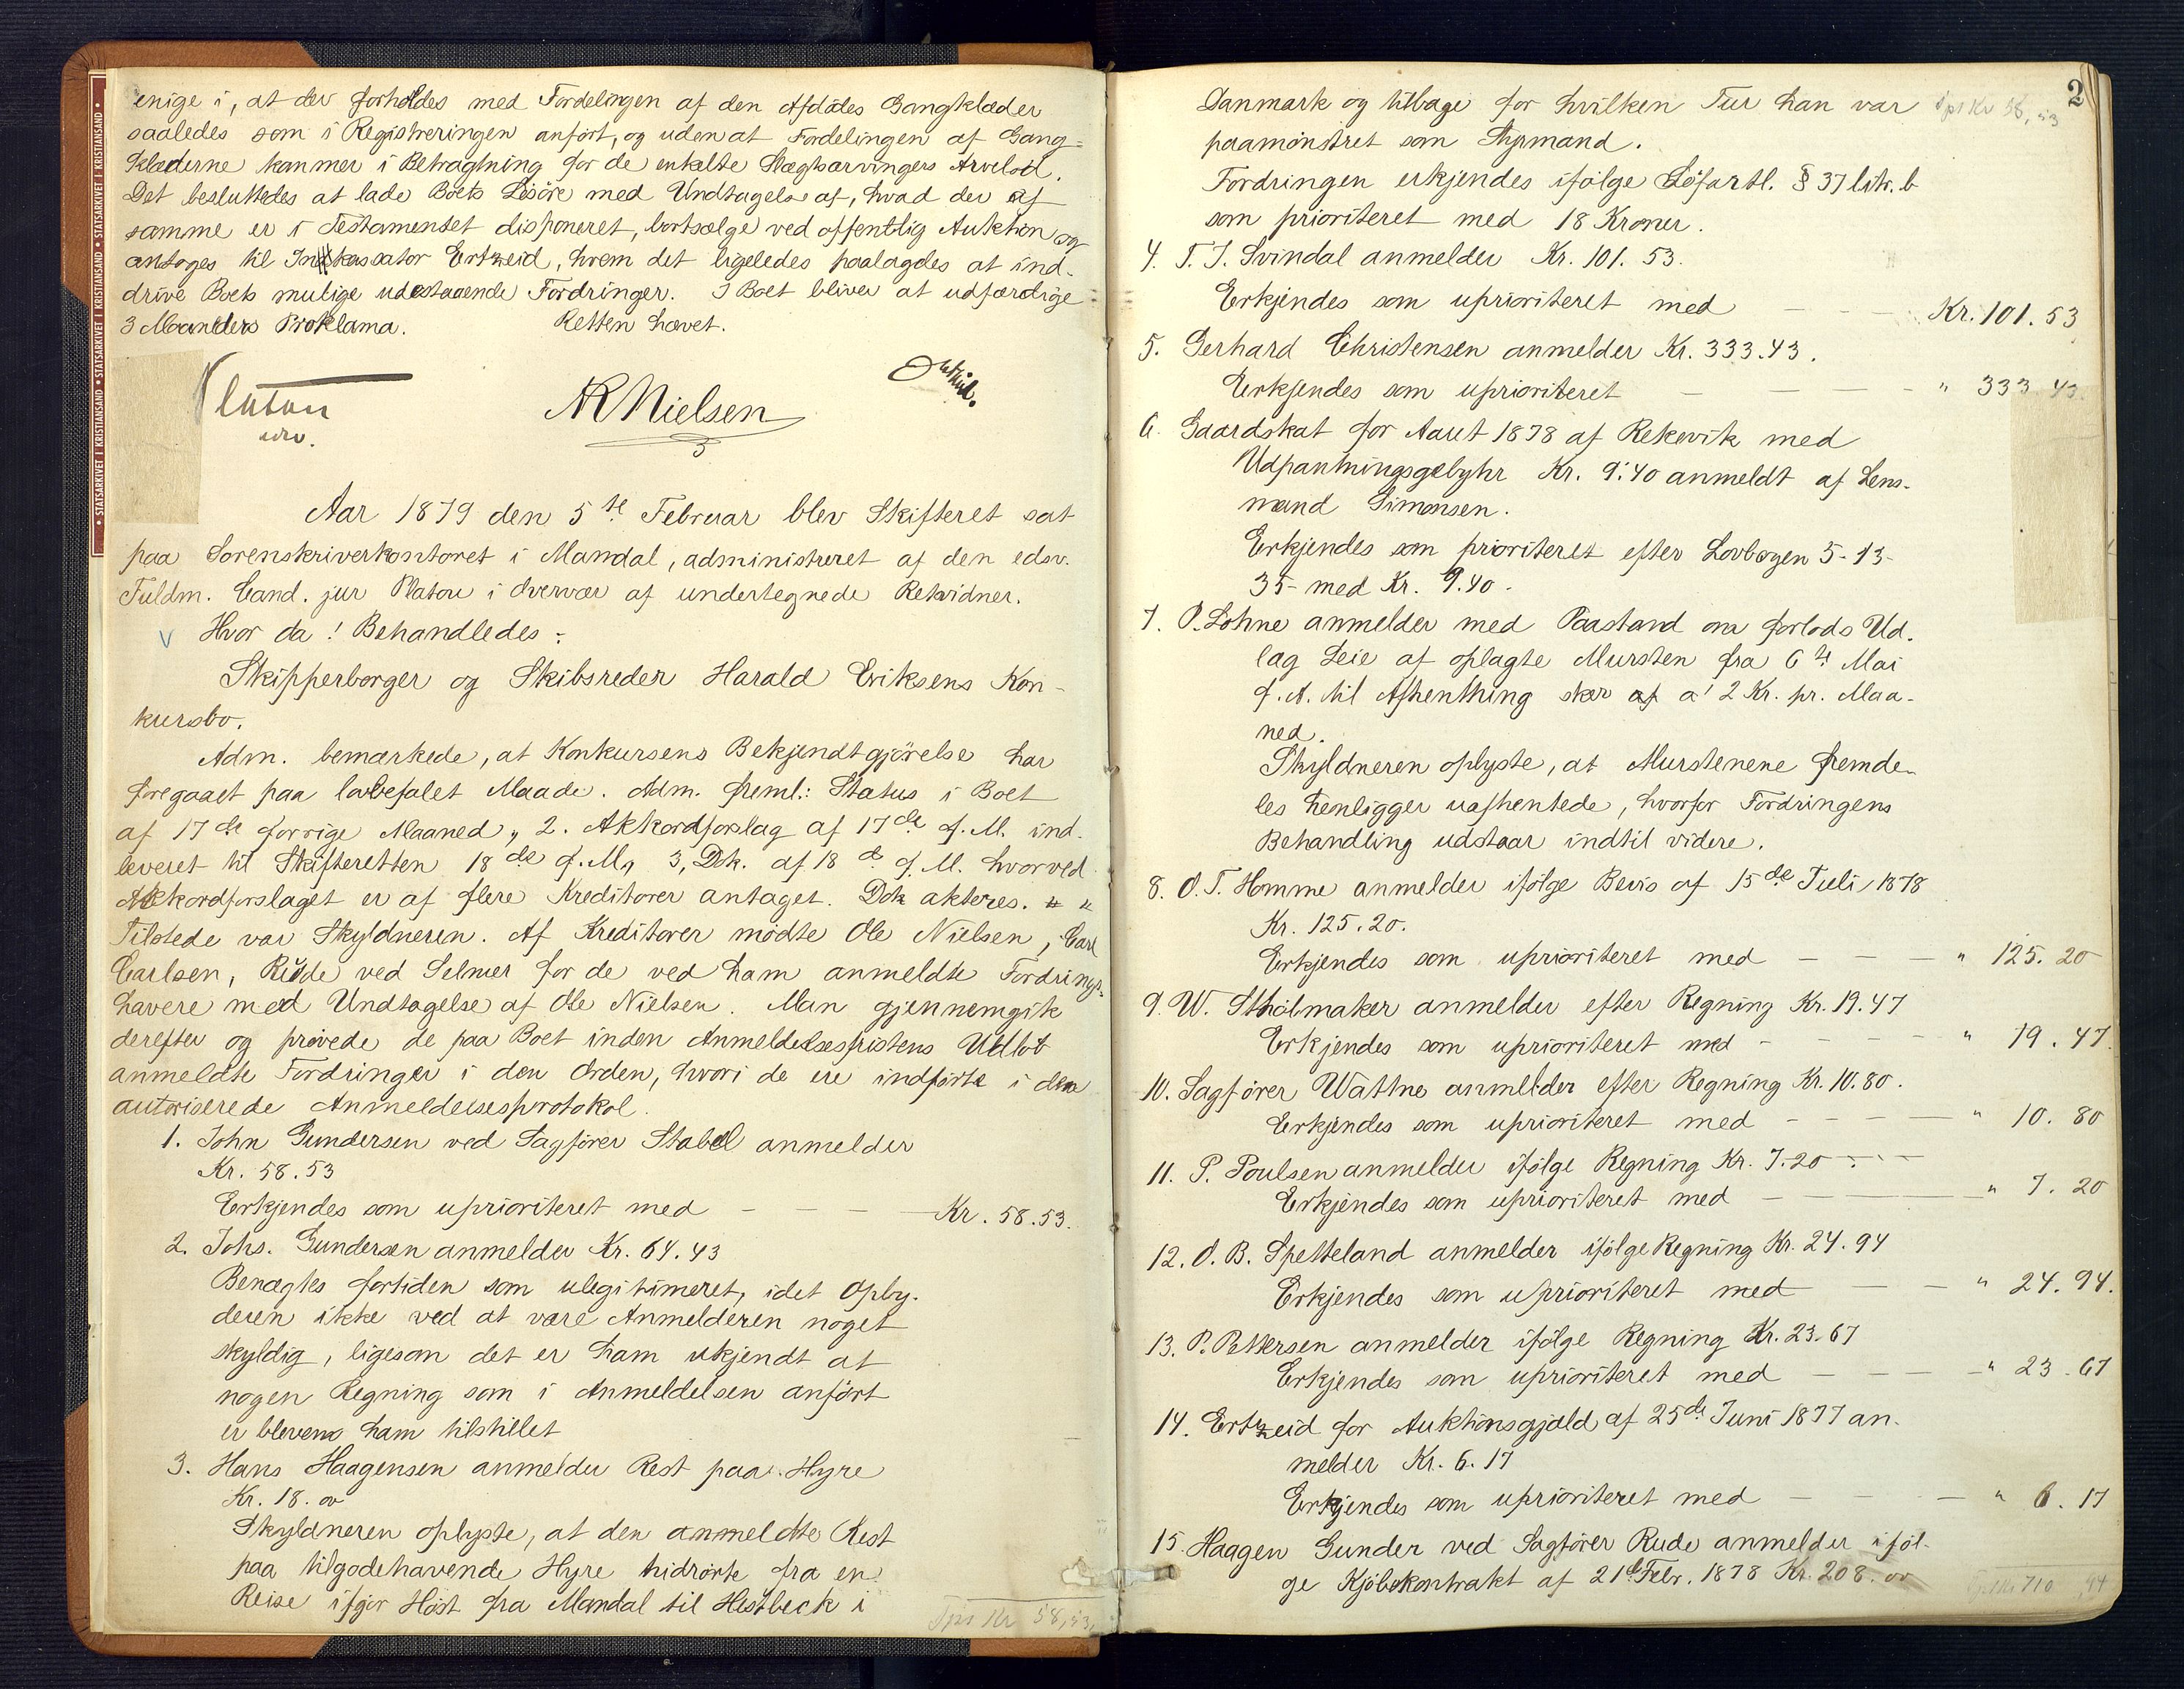 enige i, at der forholdes med Fordelingen af den Afdødes Gangklæder
saaledes som i Registreringen anført, og uden at Fordelingen af Gang=
klæderne kommer i Betragtning for de enkelte Slægtsarvingers Arvelod.
Det besluttedes at lade Boets Løsøre med Undtagelse af, hvad der af
samme er i Testamentet disponeret, bortsælge ved offentlig Auktion og
antages til Inkassator Ertzeid, hvem det ligeledes paalagdes at ind-
drive Boets mulige udestaaende Fordringer. I Boet bliver at udfærdige
3 Maaneders Proklama. Retten hævet.
Platou
edsv.
NR Nielsen
Aar 1879 den 5te Februar blev Skifteret sat
paa Sorenskriverkontoret i Mandal, administreret af den edsv.
Fuldm. Cand. jur Platou i Overvær af undertegnede Retvidner.
Hvor da! Behandledes:
Skipperborger og Skibsreder Harald Eriksens Kon-
kursbo.
Adm. bemærkede, at Konkursens Bekjendtgjörelse har
foregaaet paa lovbefalet Maade. Adm. freml.: Status i Boet
af 17de forrige Maaned, 2. Akkordforslag af 17de f. M. ind-
leveret til Skifteretten 18de f. M, 3, Dok. af 18de f. M. hvorved
Akkordforslaget er af flere Kreditorer antaget. Dok akteres. " "
Tilstede var Skyldneren. Af Kreditorer mödte Ole Nielsen, Carl
Carlsen, Rude ved Selmer for de ved ham anmeldte Fordrings-
havere med Undtagelse af Ole Nielsen. Man gjennemgik
derefter og prövede de paa Boet inden Anmeldelsesfristens Udlöb
anmeldte Fordringer i den Orden, hvori de ere indförte i den
autoriserede Anmeldelsesprotokol.
1. John Gundersen ved Sagförer Stabell anmelder
Kr. 58.53
Erkjendes som uprioriteret med - - - Kr. 58.53.
2. Johs. Gundersen anmelder Kr. 64.43
Benægtes fortiden som ulegitimeret, idet Opby-
deren ikke ved at være Anmelderen noget
skyldig, ligesom det er ham ukjendt at
nogen Regning som i Anmeldelsen anfört
er bleven ham tilstillet
3. Hans Haagensen anmelder Rest paa Hyre
Kr. 18.00
Skyldneren oplyste, at den anmeldte Rest
paa tilgodehavende Hyre hidrörte fra en
Reise ifjor Höst fra Mandal til Hestbeck i
Tps Kr 58,53,
2
Tps Kr 58,53
Danmark og tilbage for hvilken Tur han var
paamönstret som Styrmand.
Fordringen erkjendes ifölge Söfartl. § 37 litr. b
som prioriteret med 18 Kroner.
4. T. J. Svindal anmelder Kr. 101.53.
Erkjendes som uprioriteret med - - - Kr. 101.53
5. Gerhard Christensen anmelder Kr. 333.43.
Erkjendes som uprioriteret - - - " 333.43
6. Gaardskat for Aaret 1878 af Rekevik med
Udpantningsgebyhr Kr. 9.40 anmeldt af Lens-
mand Simonsen.
Erkjendes som prioriteret efter Lovbogen 5-13-
35- med Kr. 9.40.
7. O. Lohne anmelder med Paastand om forlods Ud-
lag Leie af oplagte Mursten fra 6te Mai
f. A. til Afhentning sker af a' 2 Kr. pr. Maa-
ned.
Skyldneren oplyste, at Murstenene fremde-
les henligger uafhentede, hvorfor Fordringens
Behandling udstaar indtil videre.
8. O. T. Homme anmelder ifölge Bevis af 15de Juli 1878
Kr. 125.20.
Erkjendes som uprioriteret med - - - " 125.20
9. W. Stholmaker anmelder efter Regning Kr. 19.47
Erkjendes som uprioriteret med - - - " 19.47.
10. Sagförer Wattne anmelder efter Regning Kr. 10.80.
Erkjendes som uprioriteret med - - - " 10.80
11. P. Poulsen anmelder ifölge Regning Kr. 7.20
Erkjendes som uprioriteret med - - " 7.20
12. O. B. Spetteland anmelder ifölge Regning Kr. 24.94
Erkjendes som uprioriteret med - - " 24.94.
13. P. Pettersen anmelder ifölge Regning Kr. 23.67
Erkjendes som uprioriteret med - - - " 23.67
14. Ertzeid for Auktionsgjæld af 25de Juni 1877 an-
melder Kr. 6.17
Erkjendes som uprioriteret med - - - " 6.17
15. Haagen Gunder ved Sagförer Rude anmelder iföl-
ge Kjöbekontrakt af 21de Febr. 1878 Kr. 208.00
Tps Kr 710,94
• STATSARKIVET I KRISTIANSAND • STATSARKIVET I KRISTIANSAND • STATSARKIVET I KRISTIANSAND •